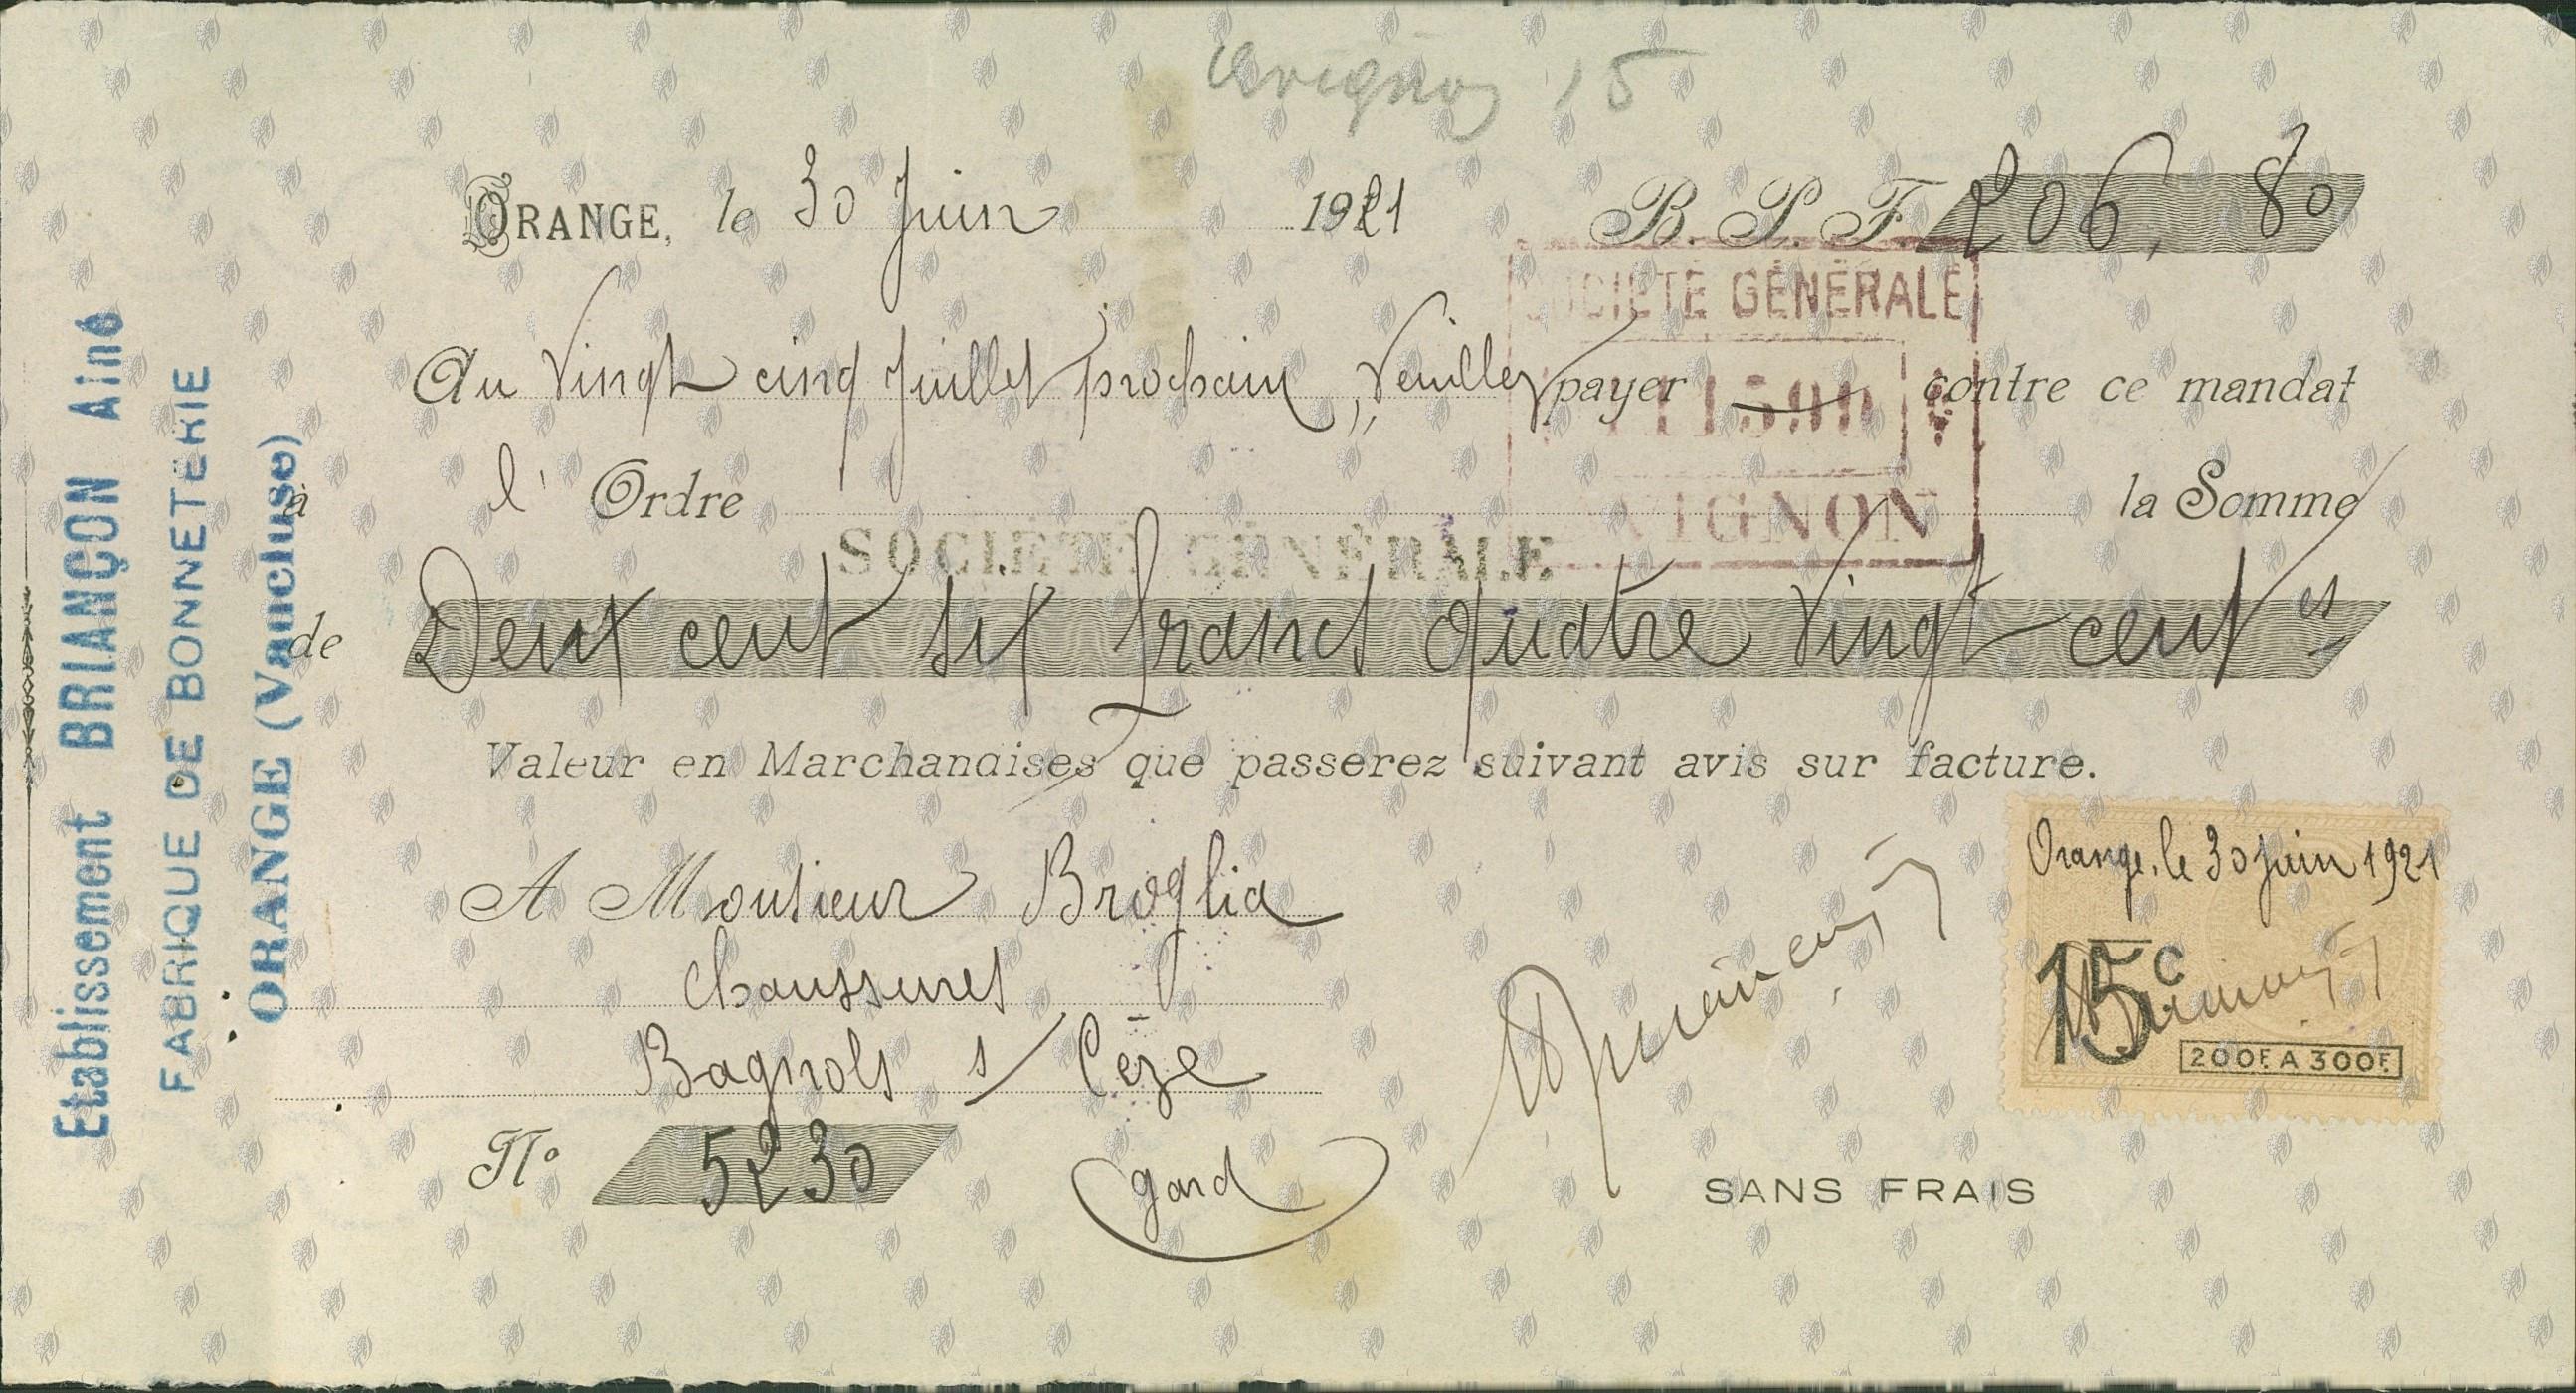 Avignon 15
ORANGE, le 30 Juin 1921 B. P. F. 206, 80
SOCIÉTÉ GÉNÉRALE
Au Vingt cinq Juillet prochain, Veuillez payer contre ce mandat
à l' Ordre la Somme
AVIGNON
SOCIÉTÉ GÉNÉRALE
de Deux cent six francs quatre vingt cent es
Valeur en Marchandises que passerez suivant avis sur facture.
A Monsieur Broglia
Chaussures
Bagnols s/ Cèze
(Gard)
N° 5230
Orange, le 30 Juin 1921
15c
200F. A 300F.
SANS FRAIS
Etablissement BRIANÇON Ainé
FABRIQUE DE BONNETERIE
ORANGE (Vaucluse)